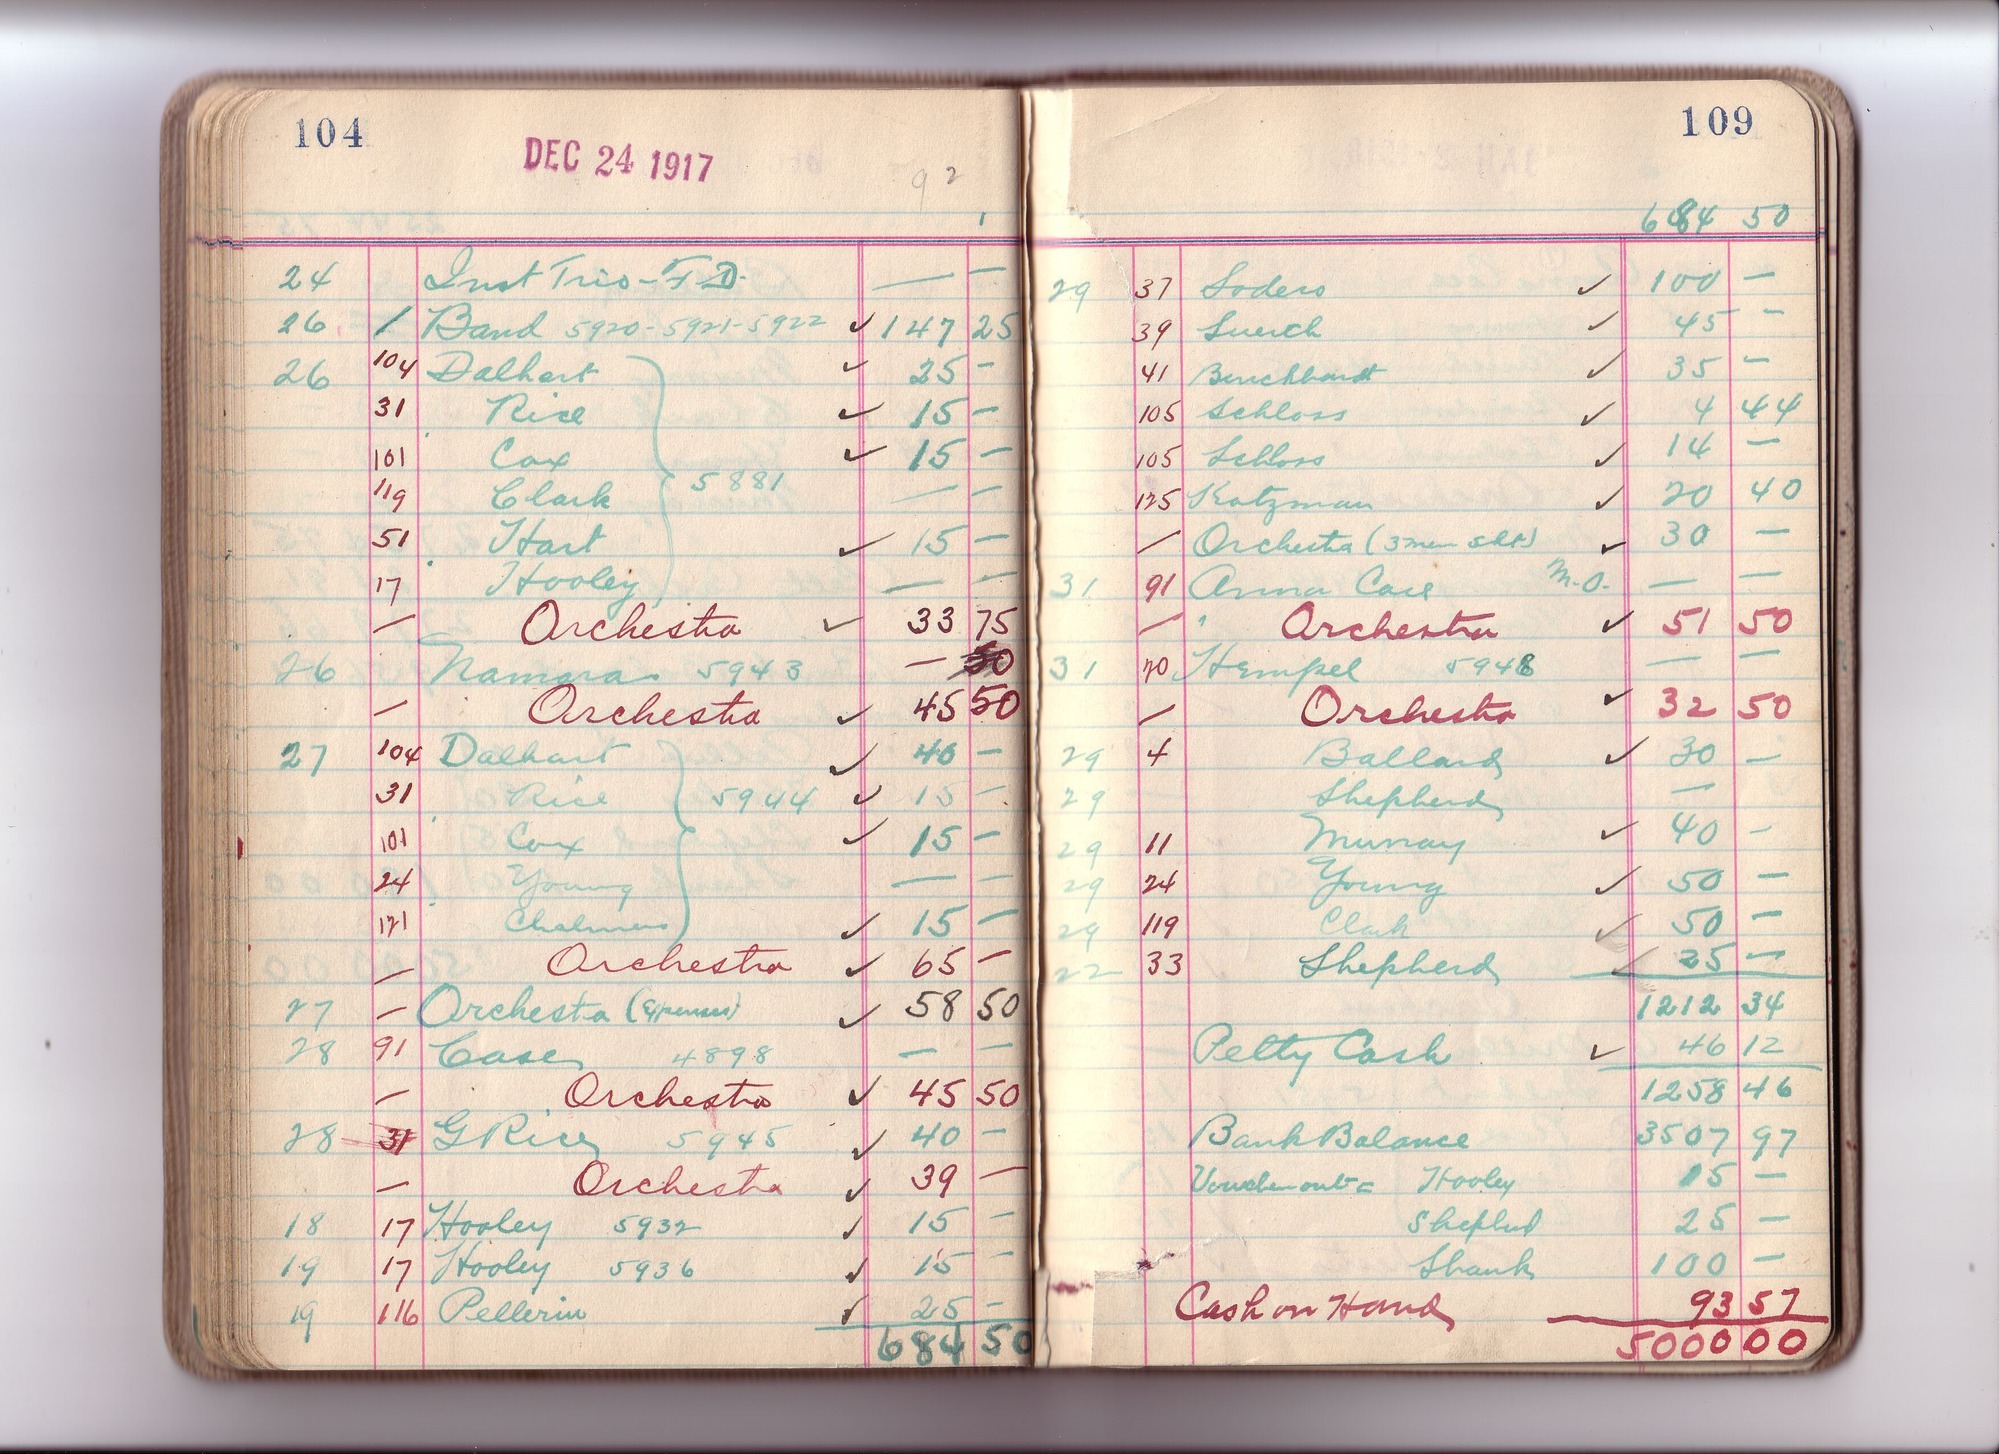 104
DEC 24 1917
92
1
24 Inst Trio - F D. — —
26 / Band 5920-5921-5922 ✓ 147 25
26 104 Dalhart ✓ 25 -
31 Rice ✓ 15 -
101 Cox ✓ 15 -
119 Clark — —
5881
51 Hart ✓ 15 -
17 Hooley — —
— Orchestra ✓ 33 75
26 Namara 5943 —
— Orchestra ✓ 45 50
27 104 Dalhart ✓ 40 -
31 Rice 5944 ✓ 15 -
101 Cox ✓ 15 -
24 Young — —
121 Chalmers ✓ 15 -
— Orchestra ✓ 65 -
27 — Orchestra (Expenses) ✓ 58 50
28 91 Case 4898 — —
— Orchestra ✓ 45 50
28 31 G Rice 5945 ✓ 40 -
— Orchestra ✓ 39 —
18 17 Hooley 5932 ✓ 15 -
19 17 Hooley 5936 ✓ 15 -
19 116 Pellerin ✓ 25 -
684 50
109
684 50
29 37 Sodero ✓ 100 -
39 Luerch ✓ 45 -
41 Burckhardt ✓ 35 -
105 Schloss ✓ 4 44
105 Schloss ✓ 14 -
125 Kotzman ✓ 20 40
— Orchestra (3 men ✓ 30 -
31 91 Anna Case M.O. — —
— Orchestra ✓ 51 50
31 70 Hempel 5948 — —
— Orchestra ✓ 32 50
29 4 Ballard ✓ 30 -
29 Shepherd — —
29 11 Murray ✓ 40 -
29 24 Young ✓ 50 -
29 119 Clark ✓ 50 -
22 33 Shepherd ✓ 25 -
1212 34
Petty Cash ✓ 46 12
1258 46
Bank Balance 3507 97
Hooley 15 -
Shepherd 25 -
Shank 100 -
Cash on Hand 93 57
5000 00